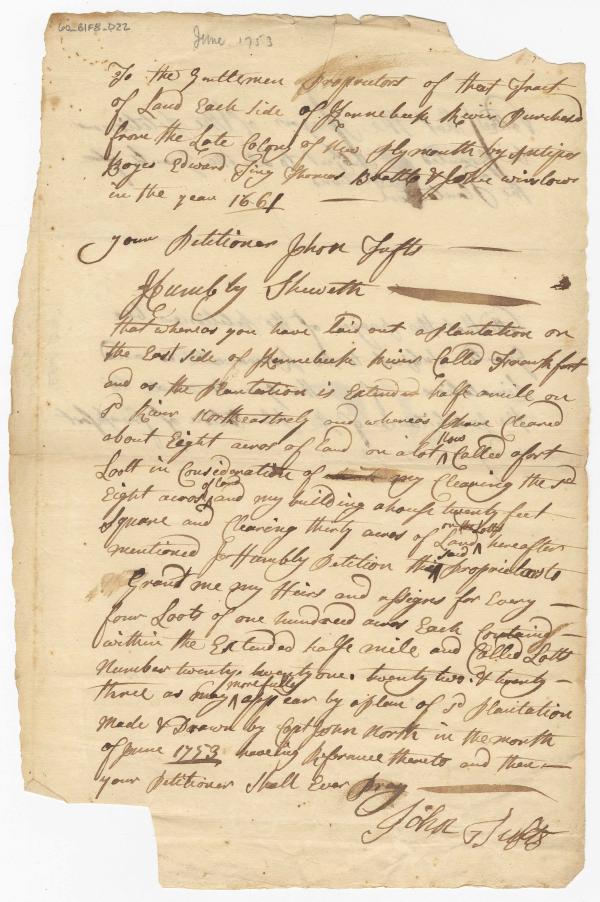 60_B1F8_D22
June 1753
To the Gentlemen Proprietors of that Tract
of Land Each Side of Kennebeck River Purchased
from the Late Colony of New Plymouth by Antipas
Boyes Edward Ting Thomas Brattle & John Winslow
in the year 1661
your Petitioner Jhon Tufts
Humbly Sheweth
that whereas you have laid out a plantation on
the East Side of Kennebeck River Called Frankfort
and as the Plantation is Extended half a mile on
sd River Northeastrely and whereas I have Cleared
about Eight acros of land on a lot Now Called a fort
Loott in Consideration of my Clearing the sd
Eight acros of Land and my building a house twenty feet
Square and Clearing thirty acros of Land on the Lotts hereafter
mentioned I Humbly Petition the said Proprietors to
Grand me my Heirs and assigns for Every
four Loots of one hundred acros Each Containd
within the Extended half mile and Called Lotts
Number twenty. twenty one. twenty two. & twenty
three as may more fully appear by a plan of sd Plantation
Made & Drawn by Capt John North in the month
of June 1753 haveing Referance thereto and then
your Petitioner Shall Ever Pray
John Tufts